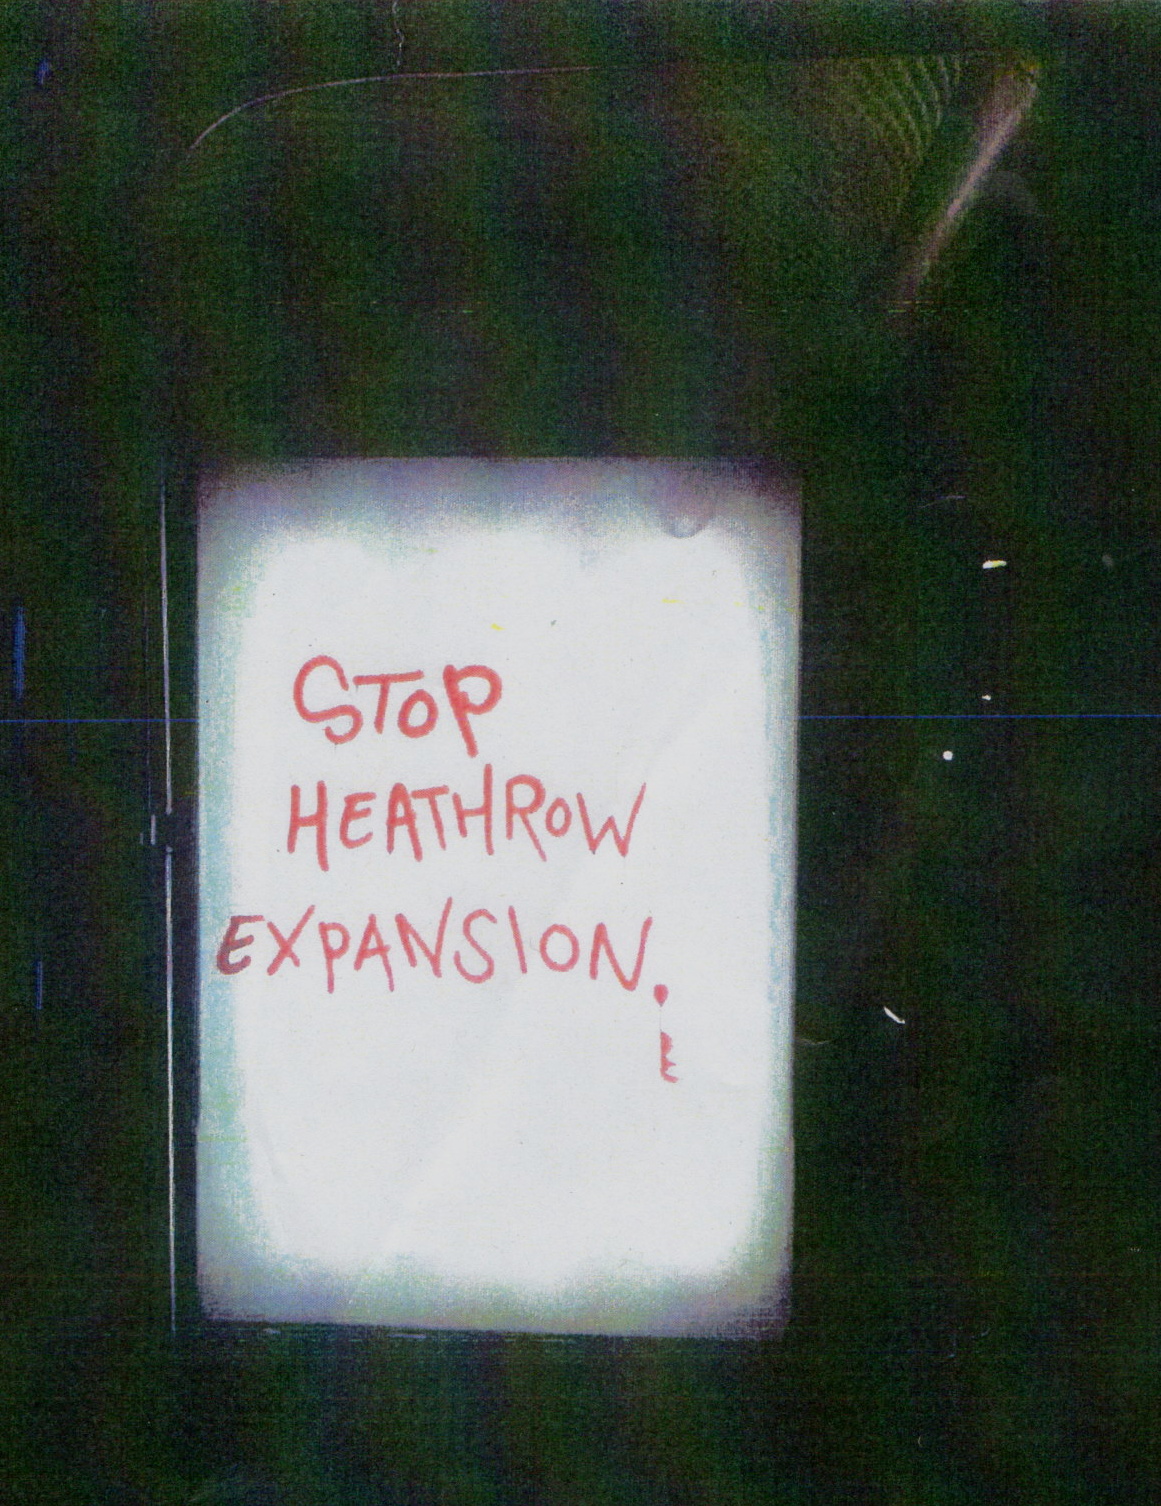 STOP
HEATHROW
EXPANSION.